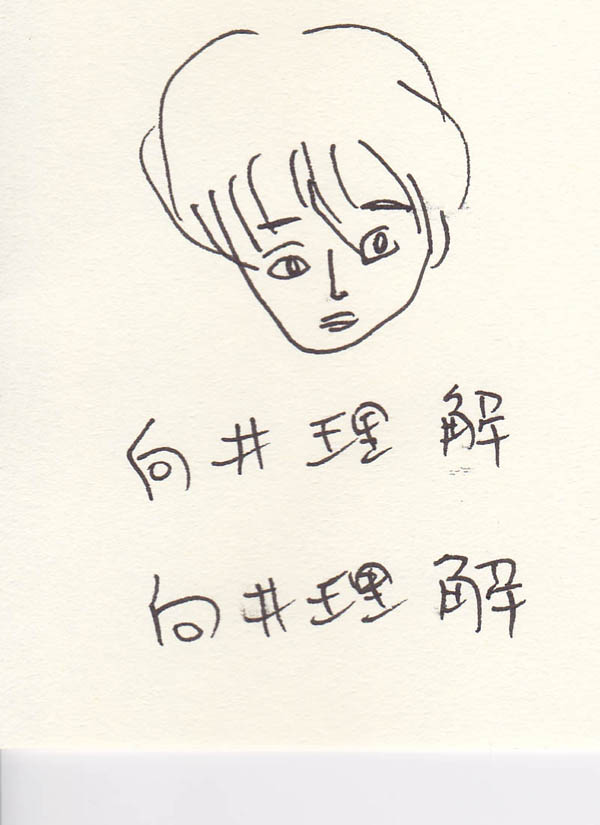 向井理解
向井理解